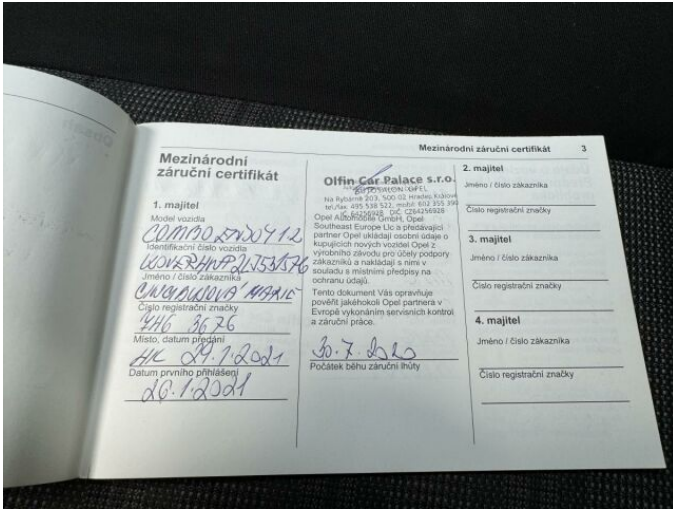 Mezinárodní záruční certifikát 3
Mezinárodní
záruční certifikát
1. majitel
Model vozidla
COMBO
Identifikační číslo vozidla
Jméno / číslo zákazníka
MARIE
Číslo registrační značky
3676
Místo, datum předání
HK 29.1.2021
Datum prvního přihlášení
26.1.2021
Olfin Car Palace s.r.o.
AUTOSALON OPEL
Na Rybárně 203, 500 02 Hradec Králové
tel./fax: 495 538 522, mobil: 602 355 390
IČ: 64256928 DIČ: CZ64256928
Opel Automobile GmbH, Opel
Southeast Europe Llc a předávající
partner Opel ukládají osobní údaje o
kupujících nových vozidel Opel z
výrobního závodu pro účely podpory
zákazníků a nakládají s nimi v
souladu s místními předpisy na
ochranu údajů.
Tento dokument Vás opravňuje
pověřit jakéhokoli Opel partnera v
Evropě vykonáním servisních kontrol
a záruční práce.
30.7.2020
Počátek běhu záruční lhůty
2. majitel
Jméno / číslo zákazníka
Číslo registrační značky
3. majitel
Jméno / číslo zákazníka
Číslo registrační značky
4. majitel
Jméno / číslo zákazníka
Číslo registrační značky